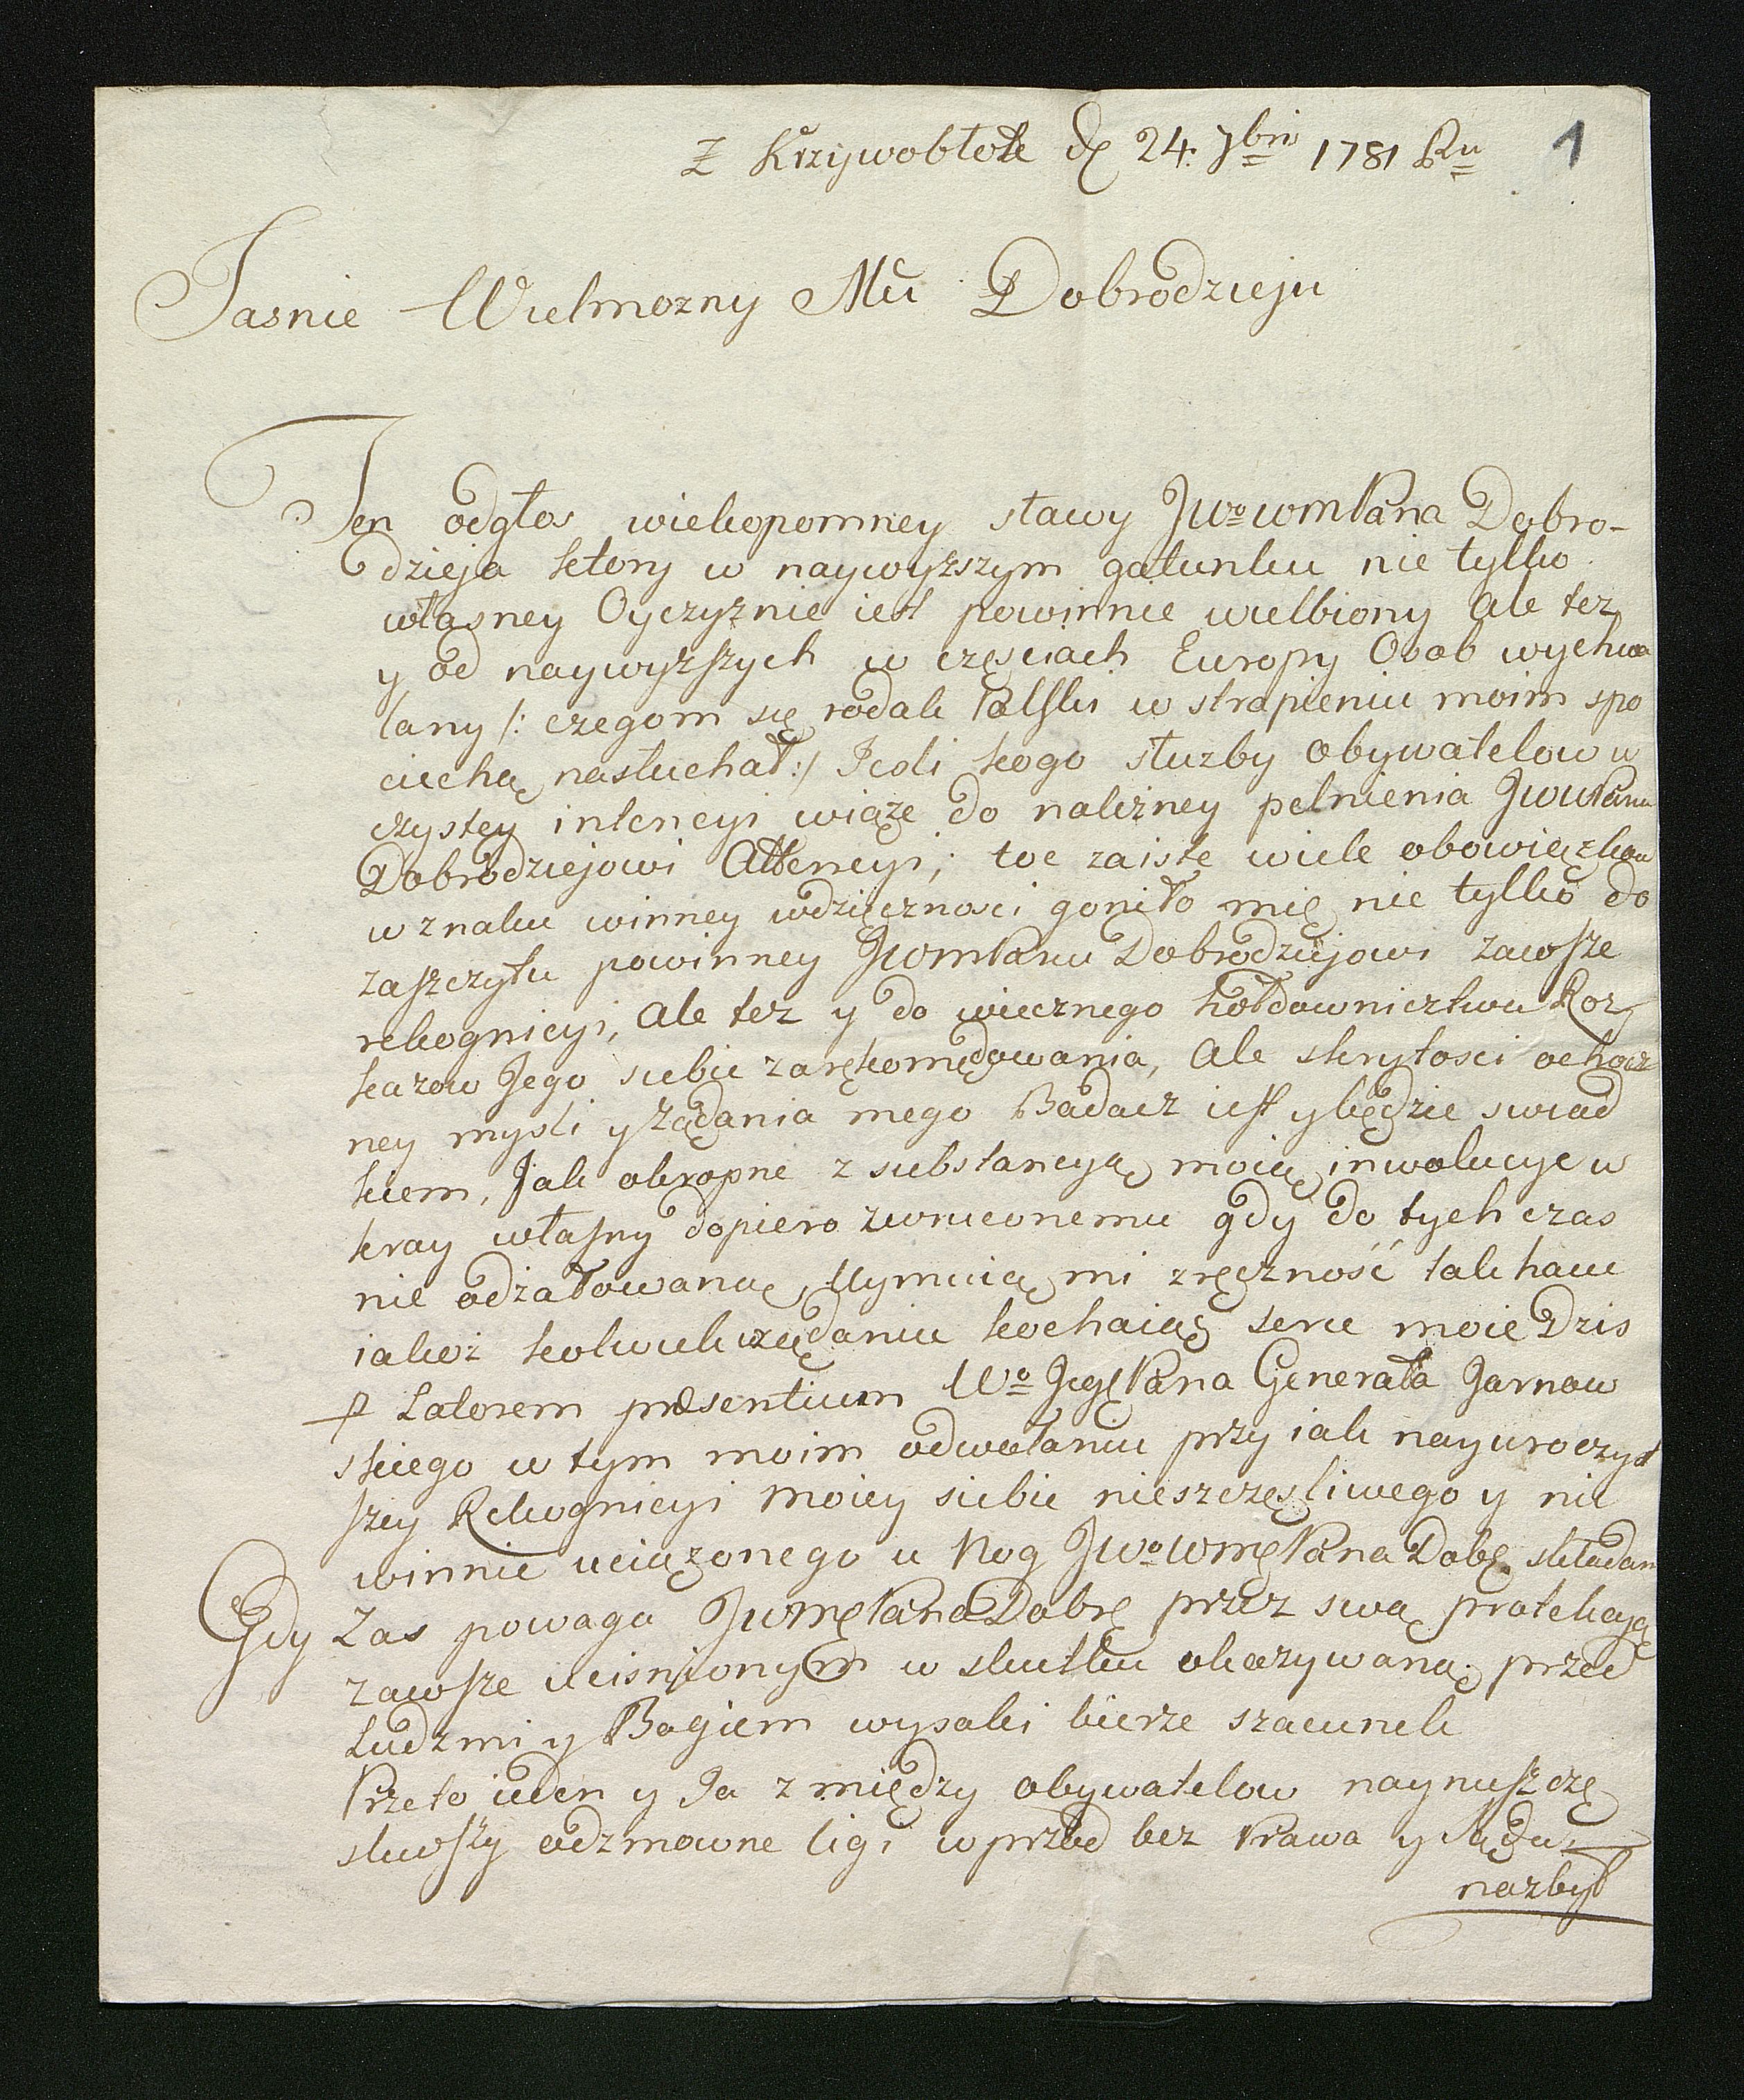 Z Krzywobłote d 24. 7bris 1781 Ru 1
Jasnie Wielmozny Mći Dobrodzieju
Ten odgłos wiekopomney sławy JWo WmPana Dobro-
dzieja ktory w naywyższym gatunku nie tylko
własney Oyczyznie iest powinnie wielbiony ale tez
y od naywyzszych w częsciach Europy Osob wychwa
lany /: czegom się rodak Polski w strapieniu moim spo
ciechą nasłuchał :/ Jesli kogo służby obywatelow w
czystey intencyi wiąże do należney pełnienia JWWPanu
Dobrodziejowi Attencyi; toc zaiste wiele obowiązkow
w znaku winney wdzięcznosci goniło mię nie tylko do
zaszczytu powinney JWmPanu Dobrodziejowi zawsze
rekognicyi, ale tez y do wiecznego hołdownictwa Roz
kazow Jego siebie zarękomędowania, Ale skrytosci ochocz
ney mysli y żądania mego Badacz iest y będzie swiad
kiem, Jak okropne z substancyą moią inwolucye w
kray własny dopiero zwruconemu gdy do tych czas
nie odżałowaną, Uymuią mi zręczność tak haw
iakoż kolwiek żądaniu kochaiąc serce moie Dzis
p Latorem præsentium Wo JegęPana Generała Jarnow
skiego w tym moim odwołaniu przy iak nayuroczyst
szey Rekognicyi moiey siebie nieszczęsliwego y nie
winnie uciążonego u Nog JWo WmęPana Dobę składam
Gdy Zas powaga JWmęPana Dobrę przez swą protekcyą
zawsze ucisnionym w skutku okazywaną przed
Ludzmi y Bogiem wysoki bierze szacunek
Przeto ieden y Ja z między obywatelow naynieszczę
sliwszy odzmowne ligi wprzod bez Prawa y Sądu
nazbyt